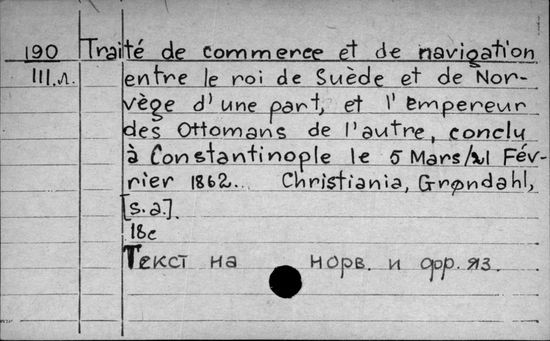 190 Traité de commerce et de navigation
III.л. entre le roi de Suède et de Nor-
vège d'une part, et l'Empereur
des Ottomans de l'autre, conclu
à Constantinople le 5 Mars/21 Fév-
rier 1862. Christiania, Grøndahl,
[s.a.].
18c
Текст на норв. и фр. яз.